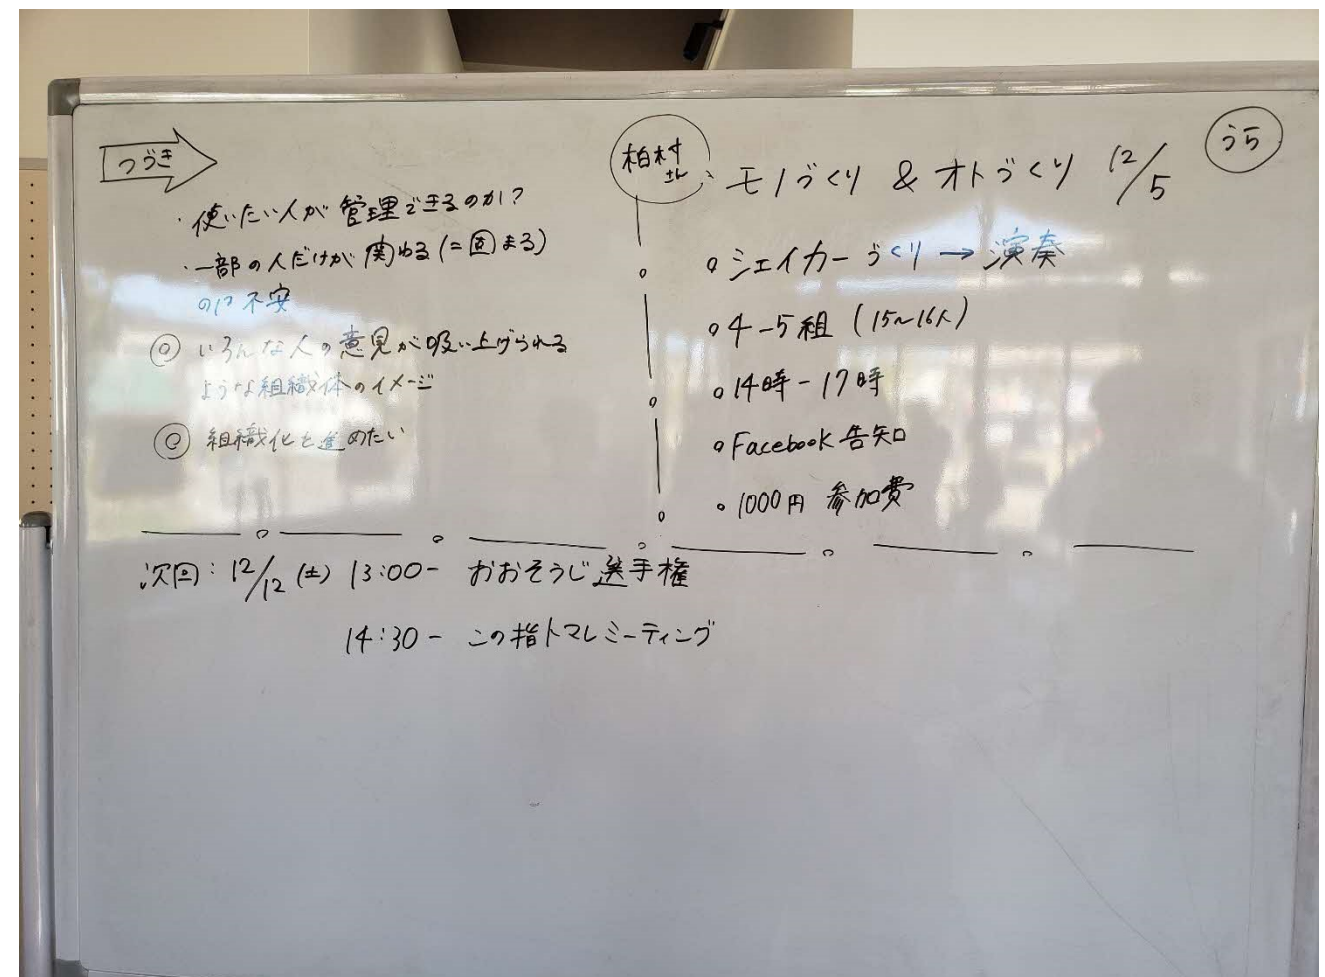 つづき
・使いたい人が管理できるのか?
・一部の人だけが関わる(=固まる)
のは不安
◎ いろんな人の意見が吸い上げられる
ような組織体のイメージ
◎ 組織化を進めたい
うら
柏村さん: モノづくり & オトづくり 12/5
◦シェイカーづくり → 演奏
◦4-5組 (15~16人)
◦14時-17時
◦Facebook告知
◦1000円 参加費
次回: 12/12 (土) 13:00- おおそうじ選手権
14:30- この指トマレミーティング